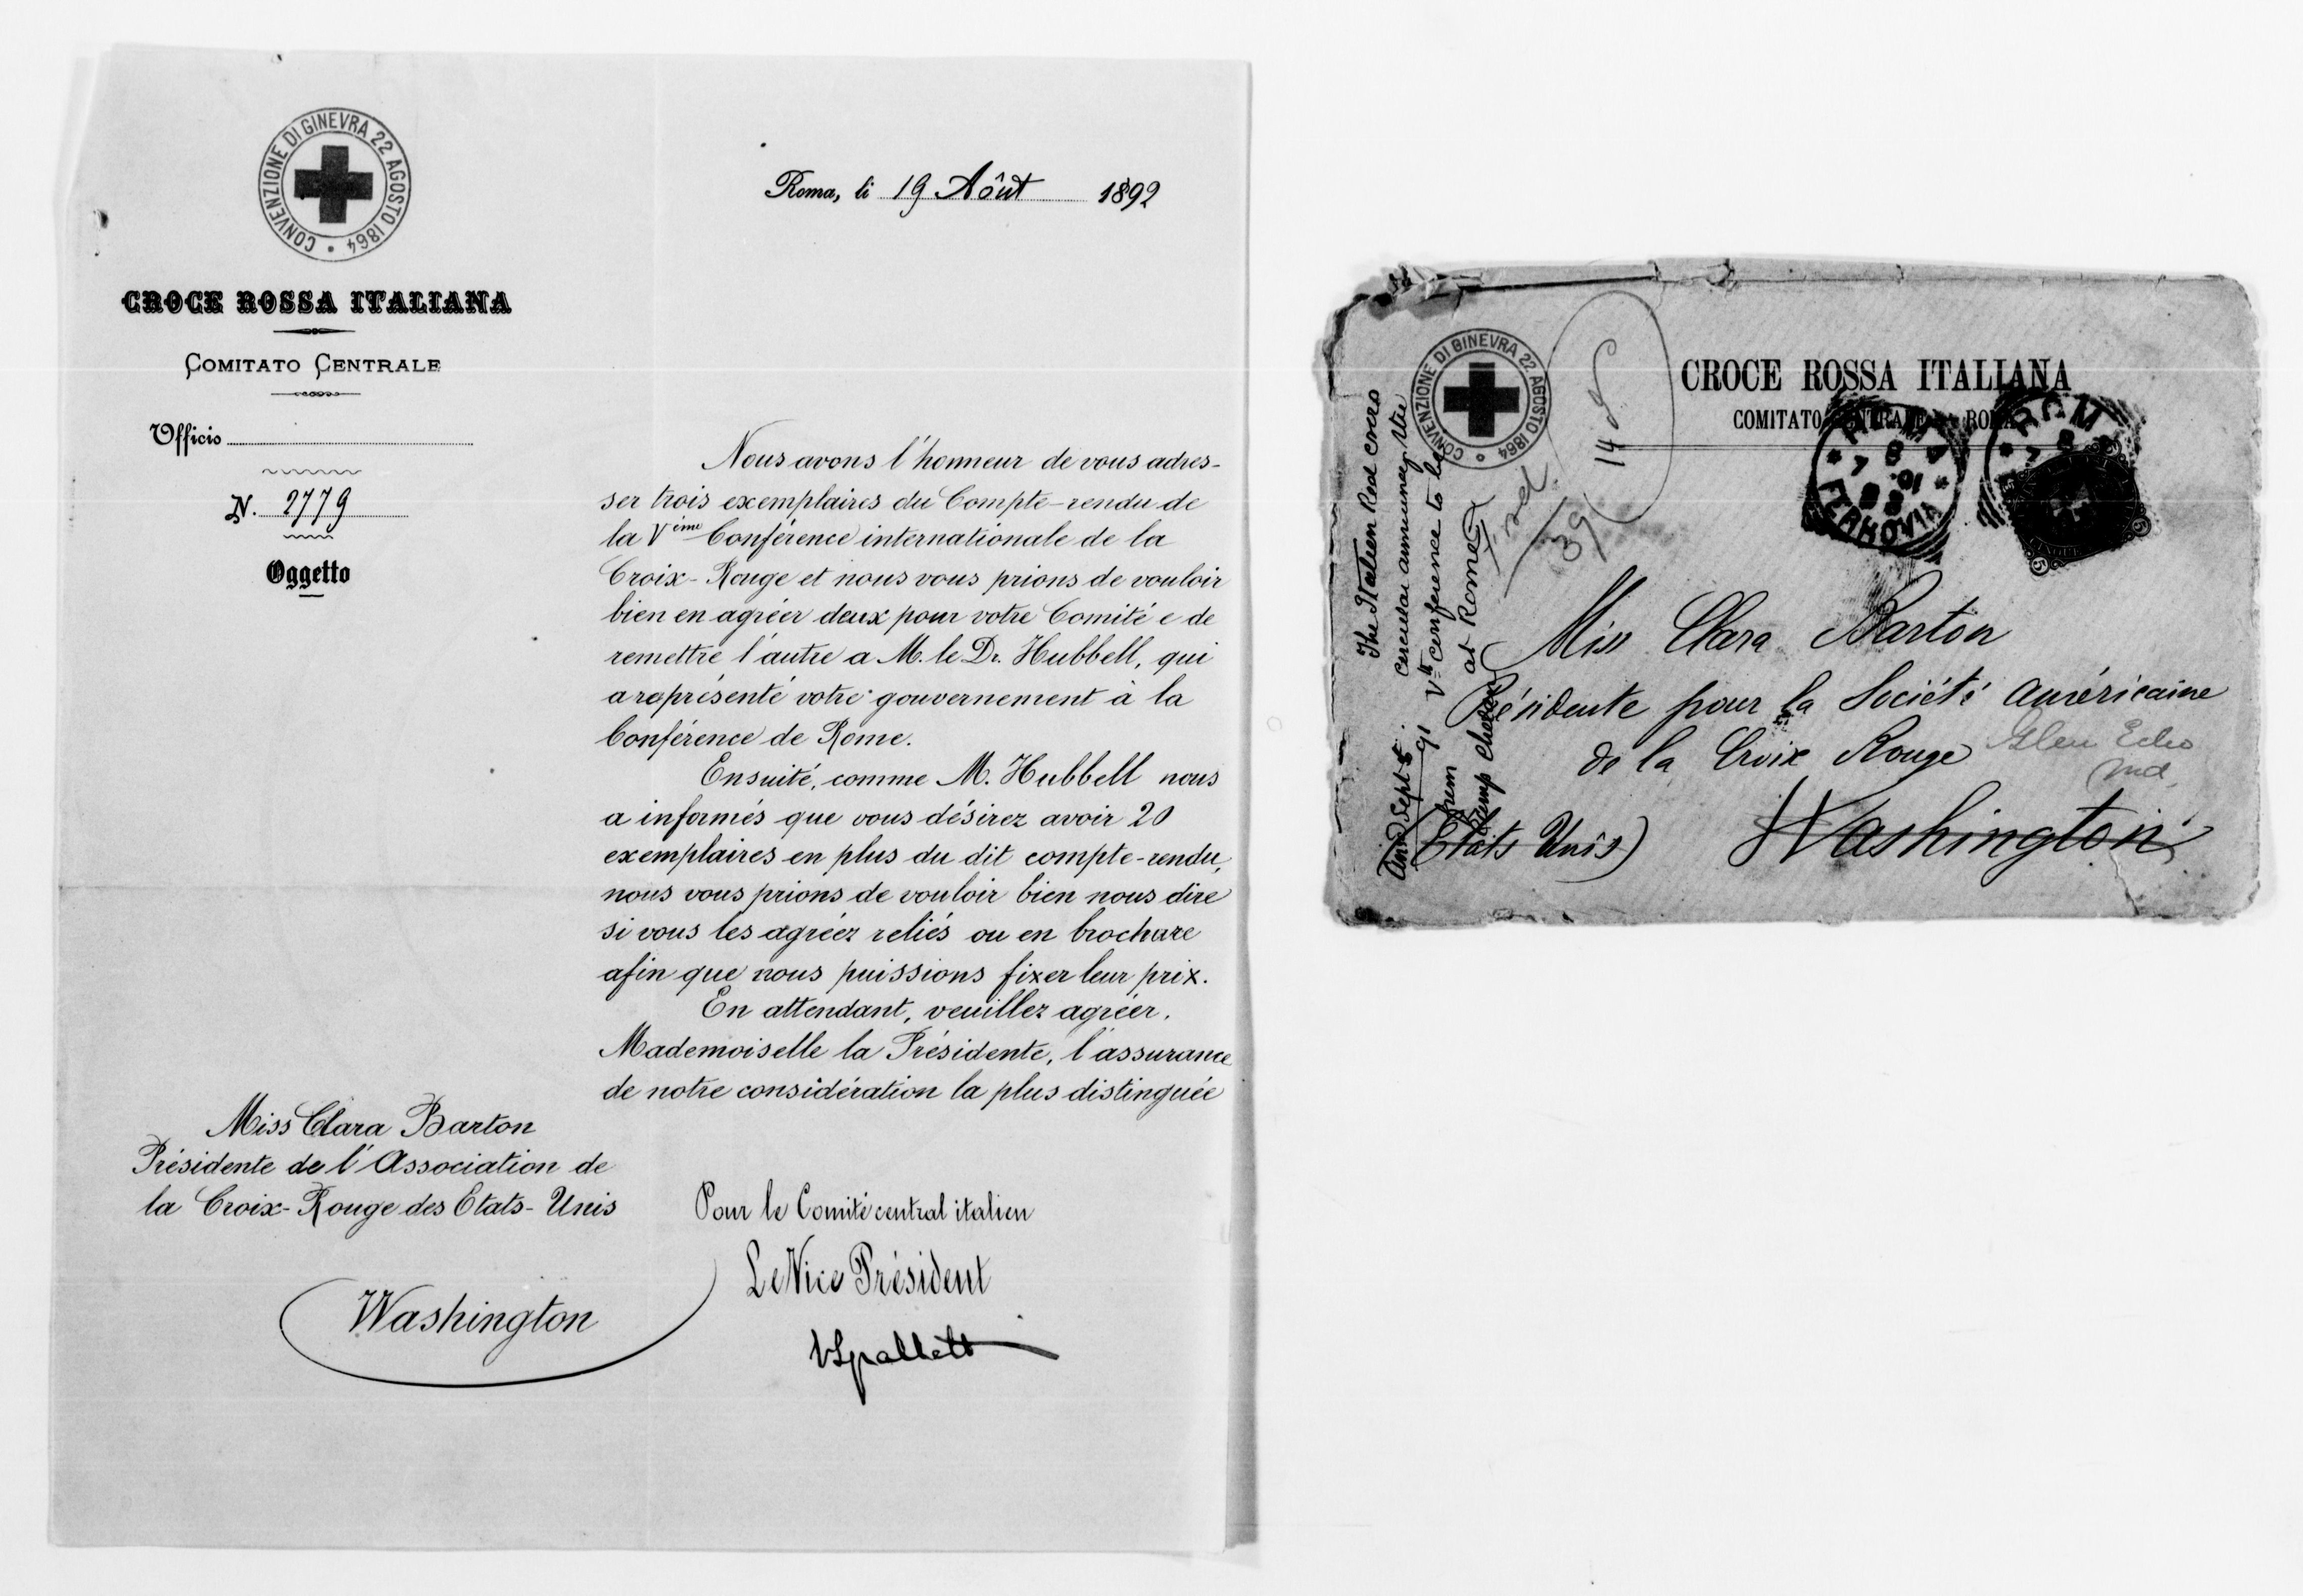 CONVENZIONE DI GINEVRA 22 AGOSTO 1864
CROCE ROSSA ITALIANA
COMITATO CENTRALE
Officio
N. 2779
Oggetto
Roma, li 19 Aôut 1892
Nous avons l'honneur de vous adres-
ser trois exemplaires du Compte-rendu de
la Vème Conférence internationale de la
Croix-Rouge et nous vous prions de vouloir
bien en agréer deux pour votre Comité e de
remettre l'autre a M. le Dr. Hubbell, qui
a représenté votre gouvernement à la
Conférence de Rome.
Ensuité, comme M. Hubbell nous
a informés que vous désirez avoir 20
exemplaires en plus du dit compte-rendu,
nous vous prions de vouloir bien nous dire
si vous les agréez reliés ou en brochure
afin que nous puissions fixer leur prix.
En attendant, veuillez agréer,
Mademoiselle la Présidente, l'assurance
de notre considération la plus distinguée
Miss Clara Barton
Présidente de l'Association de
la Croix-Rouge des Etats-Unis
Washington
Pour le Comité central italien
Le Vice Président
CONVENZIONE DI GINEVRA 22 AGOSTO 1864
CROCE ROSSA ITALIANA
COMITATO CENTRALE ROMA
ROMA
FERROVIA
Miss Clara Barton
Présidente pour la Société américaine
de la Croix Rouge
Glen Echo
Md.
(Etats Unis) Washington
The Italien Red cross
circular announcing the
Vth conference to be
at Rome
Sept 8
91
from
39
14